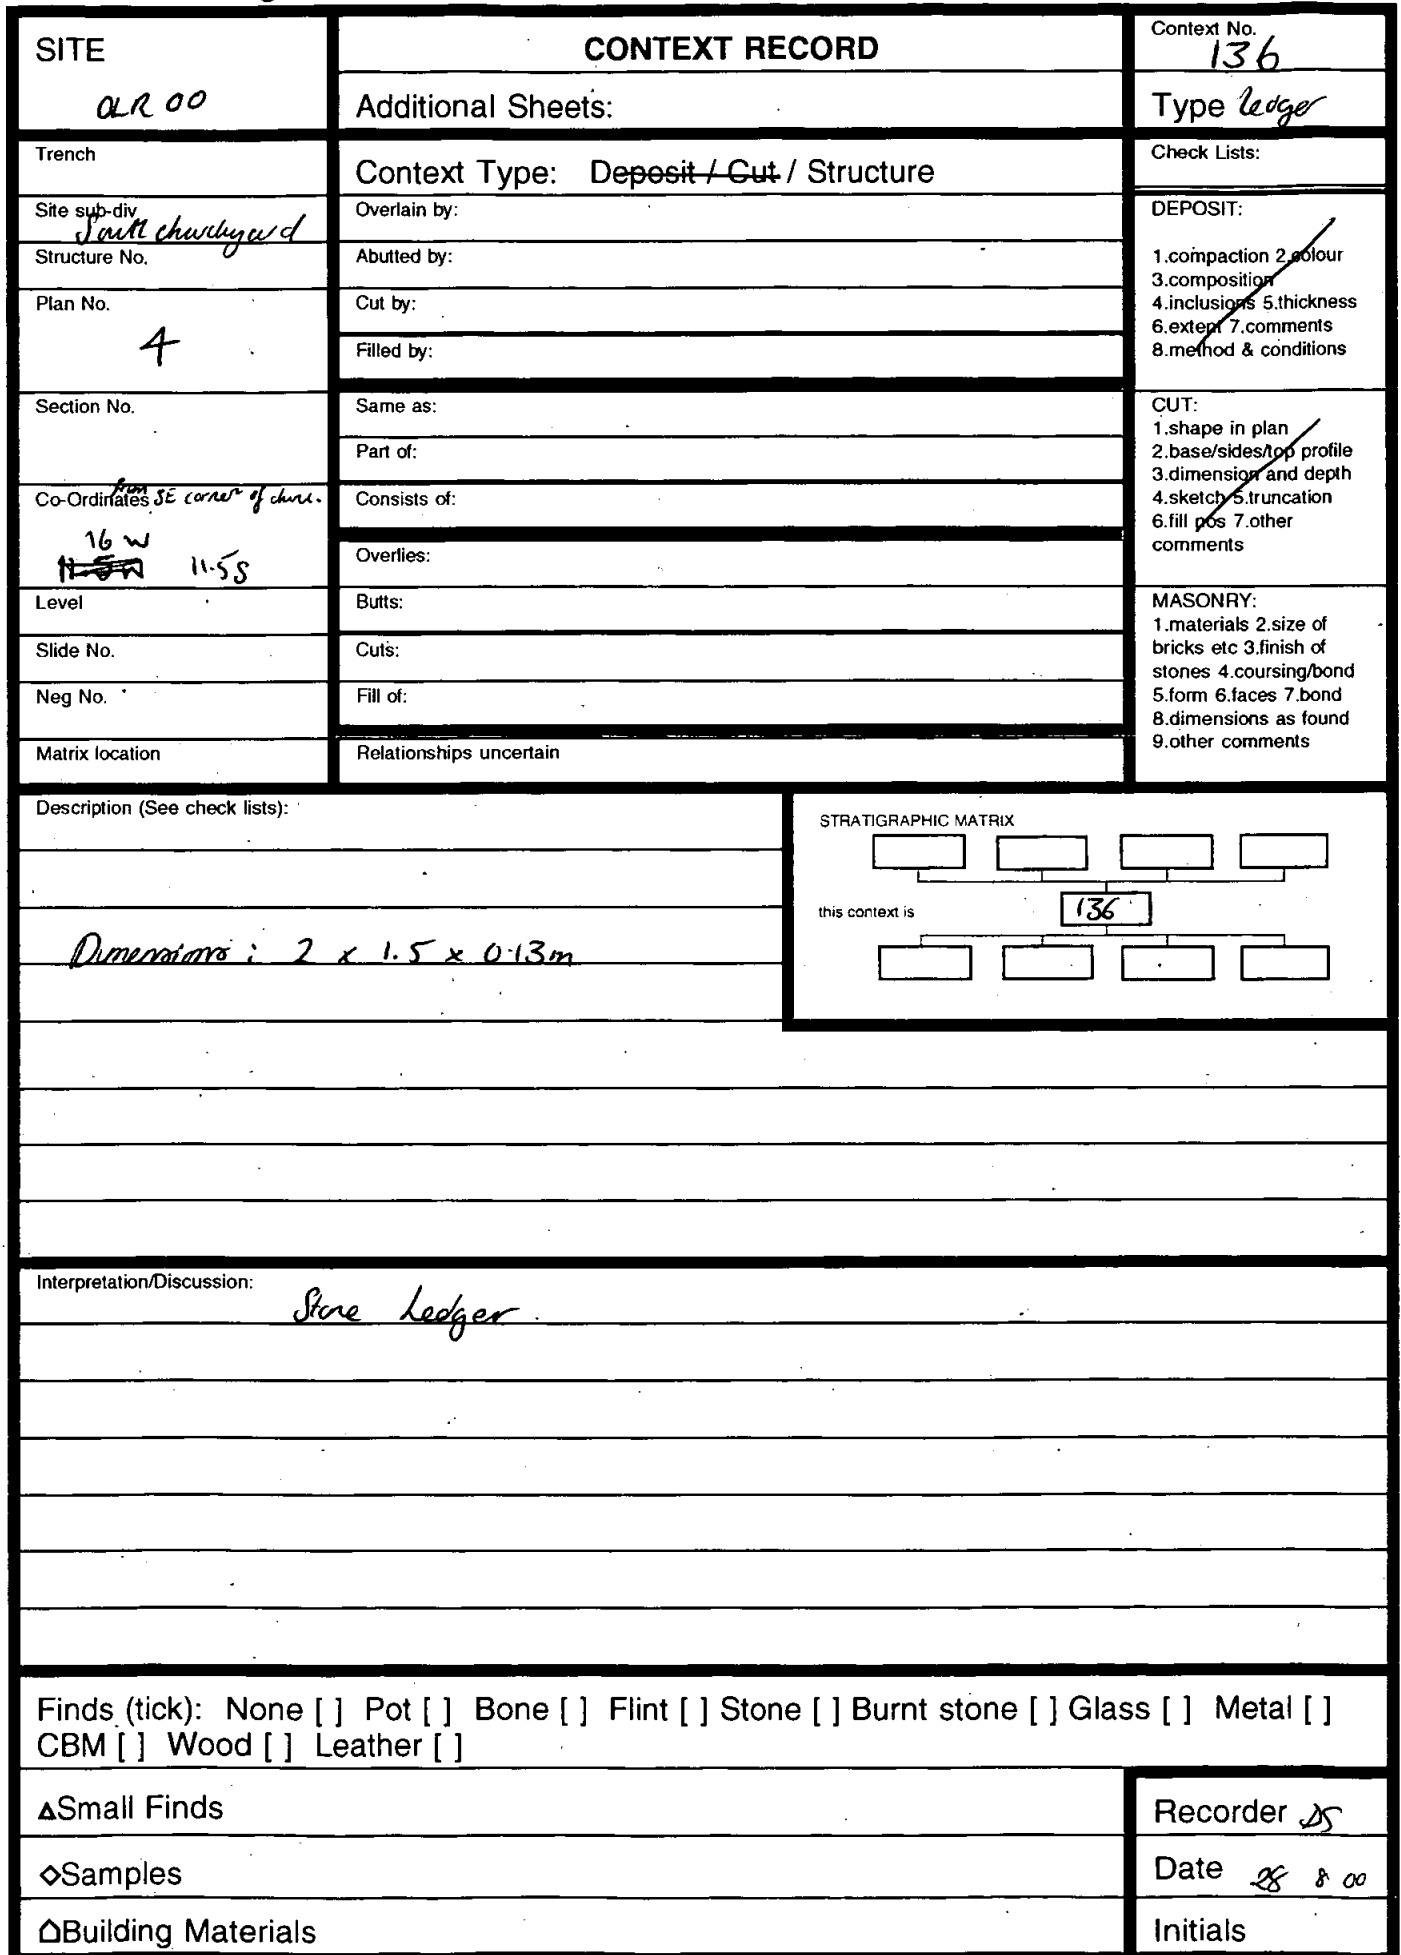 SITE
OLR 00
CONTEXT RECORD
Additional Sheets:
Context No.
136
Type Ledger
Trench
Context Type: Deposit / Cut / Structure
Check Lists:
Site sub-div
South churchyard
Structure No.
Plan No.
4
Section No.
Co-Ordinates from SE corner of
16 W
11.5S
Level
Slide No.
Neg No.
Matrix location
Overlain by:
Abutted by:
Cut by:
Filled by:
Same as:
Part of:
Consists of:
Overlies:
Butts:
Cuts:
Fill of:
Relationships uncertain
DEPOSIT:
1.compaction 2.colour
3.composition
4.inclusions 5.thickness
6.extent 7.comments
8.method & conditions
CUT:
1.shape in plan
2.base/sides/top profile
3.dimension and depth
4.sketch 5.truncation
6.fill pos 7.other
comments
MASONRY:
1.materials 2.size of
bricks etc 3.finish of
stones 4.coursing/bond
5.form 6.faces 7.bond
8.dimensions as found
9.other comments
Description (See check lists):
Dimensions : 2 x 1.5 x 0.13m
STRATIGRAPHIC MATRIX
this context is
136
Interpretation/Discussion:
Stone Ledger.
Finds (tick): None [ ] Pot [ ] Bone [ ] Flint [ ] Stone [ ] Burnt stone [ ] Glass [ ] Metal [ ]
CBM [ ] Wood [ ] Leather [ ]
△Small Finds
◇Samples
⌂Building Materials
Recorder DS
Date 28 8 00
Initials